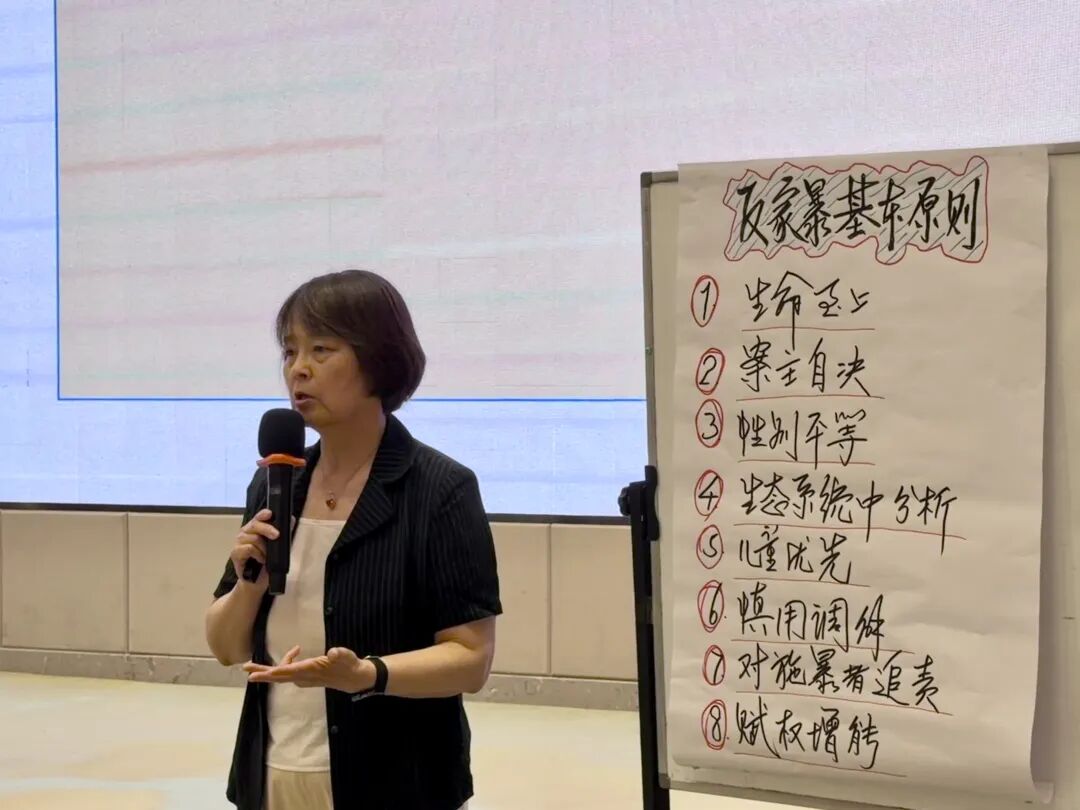 反家暴基本原则
① 生命至上
② 案主自决
③ 性别平等
④ 生态系统中分析
⑤ 儿童优先
⑥ 慎用调解
⑦ 对施暴者追责
⑧ 赋权增能